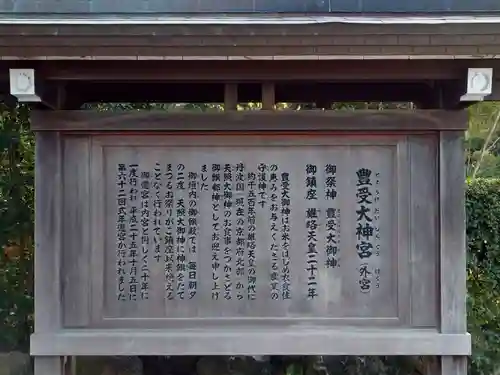 豊受大神宮（外宮）
御祭神　豊受大御神
御鎮座　雄略天皇二十二年
豊受大御神はお米をはじめ衣食住
の恵みをお与えくださる産業の
守護神です
約千五百年前の雄略天皇の御代に
丹波国（現在の京都府北部）から
天照大御神のお食事をつかさどる
御饌都神としてお迎え申し上げ
ました
御垣内の御饌殿では　毎日朝夕
の二度　天照大御神に神饌をたて
まつるお祭りが御鎮座以来絶える
ことなく行われています
御遷宮は内宮と同じく二十年に
一度行われ　平成二十五年十月五日に
第六十二回式年遷宮が行われました